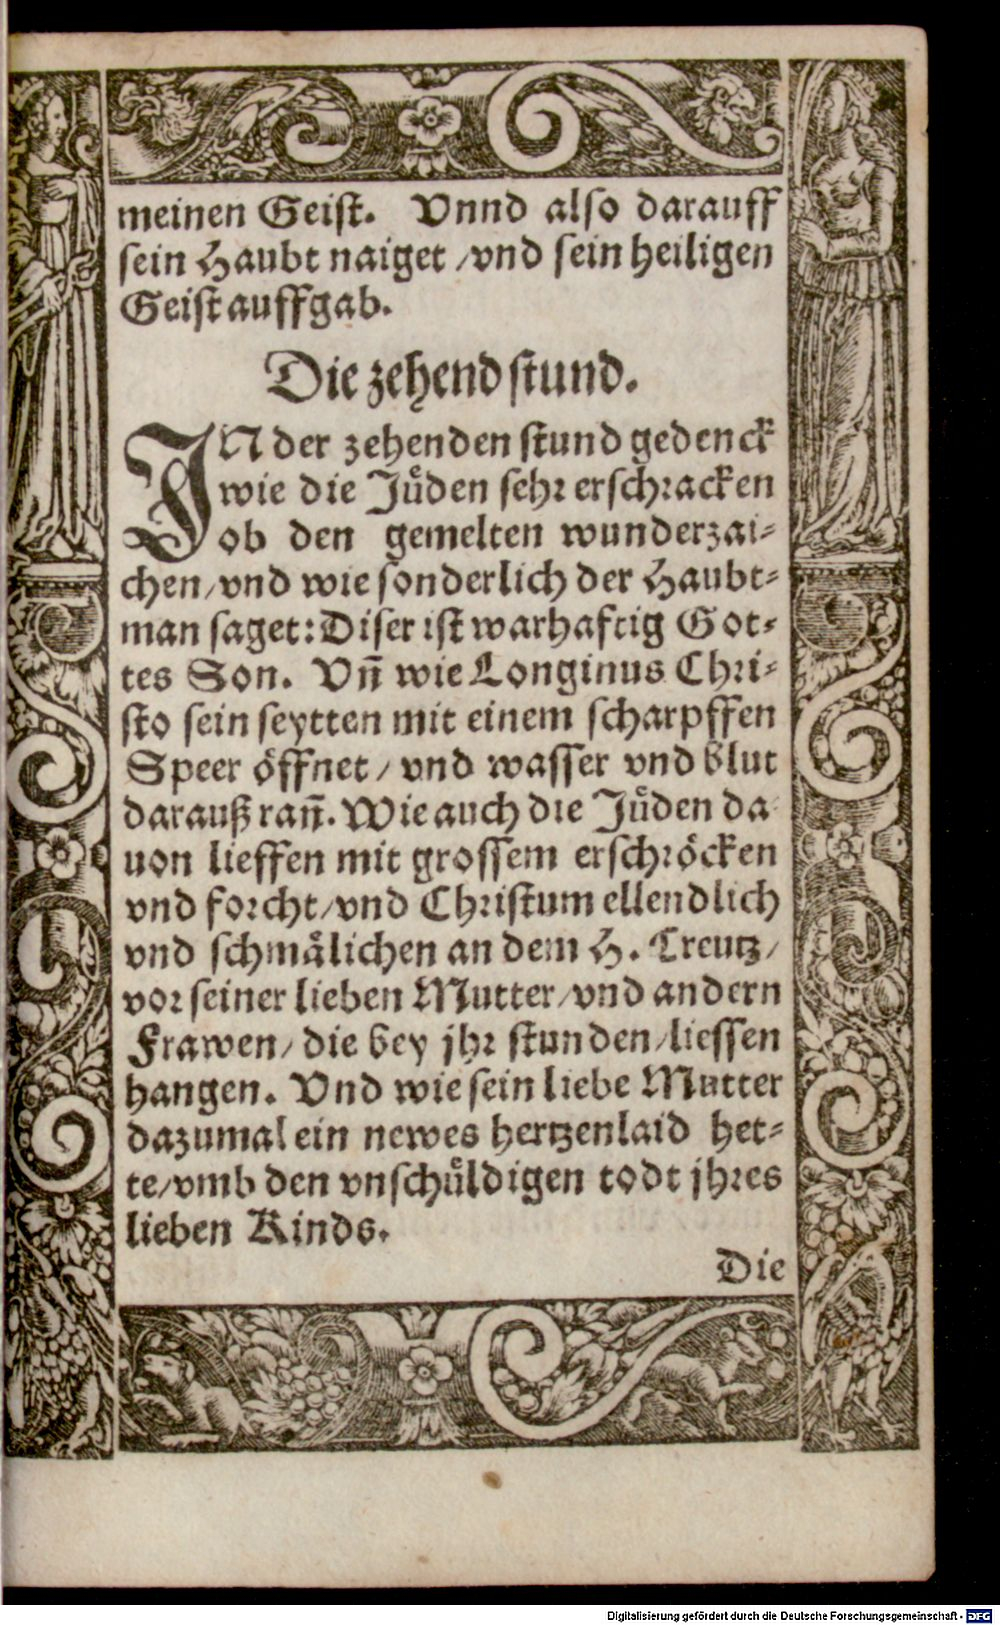 meinen Geist. Vnnd also darauff
sein Haubt naiget /vnd sein heiligen
Geist auffgab.
Die zehend stund.
IN der zehenden stund gedenck
wie die Jůden sehr erschracken
ob den gemelten wunderzai⸗
chen/vnd wie sonderlich der Haubt⸗
man saget: Diser ist warhafftig Got⸗
tes Son. Vn̄ wie Longinus Chri⸗
sto sein seytten mit einem scharpffen
Speer öffnet / vnd wasser vnd blut
darauß ran̄. Wie auch die Jůden da
uon lieffen mit grossem erschröcken
vnd forcht/vnd Christum ellendlich
vnd schmålichen an dem H. Creutz/
vor seiner lieben Mutter/vnd andern
Frawen/ die bey jhr stunden/liessen
hangen. Vnd wie sein liebe Mutter
dazumal ein newes hertzenlaid het⸗
te/vmb den vnschůldigen todt jhres
lieben Kinds.
Die
Digitalisierung gefördert durch die Deutsche Forschungsgemeinschaft - DFG